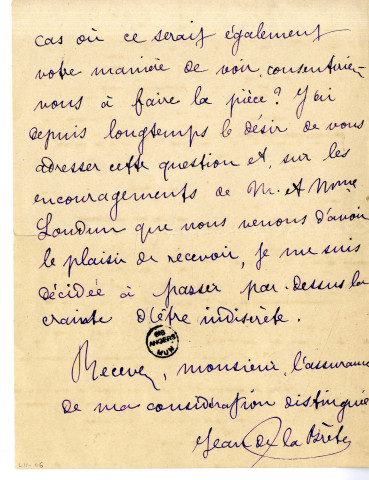 cas où ce serait également
votre manière de voir, consentiriez-
vous à faire la pièce ? J'ai
depuis longtemps le désir de vous
adresser cette question et, sur les
encouragements de M. et Mme
Loudun que nous venons d'avoir
le plaisir de recevoir, je me suis
décidée à passer par-dessus la
crainte d'être indiscrète.
BIB
ANGERS
MUN
Recevez, monsieur, l'assurance
de ma considération distinguée
Jean de la Brète